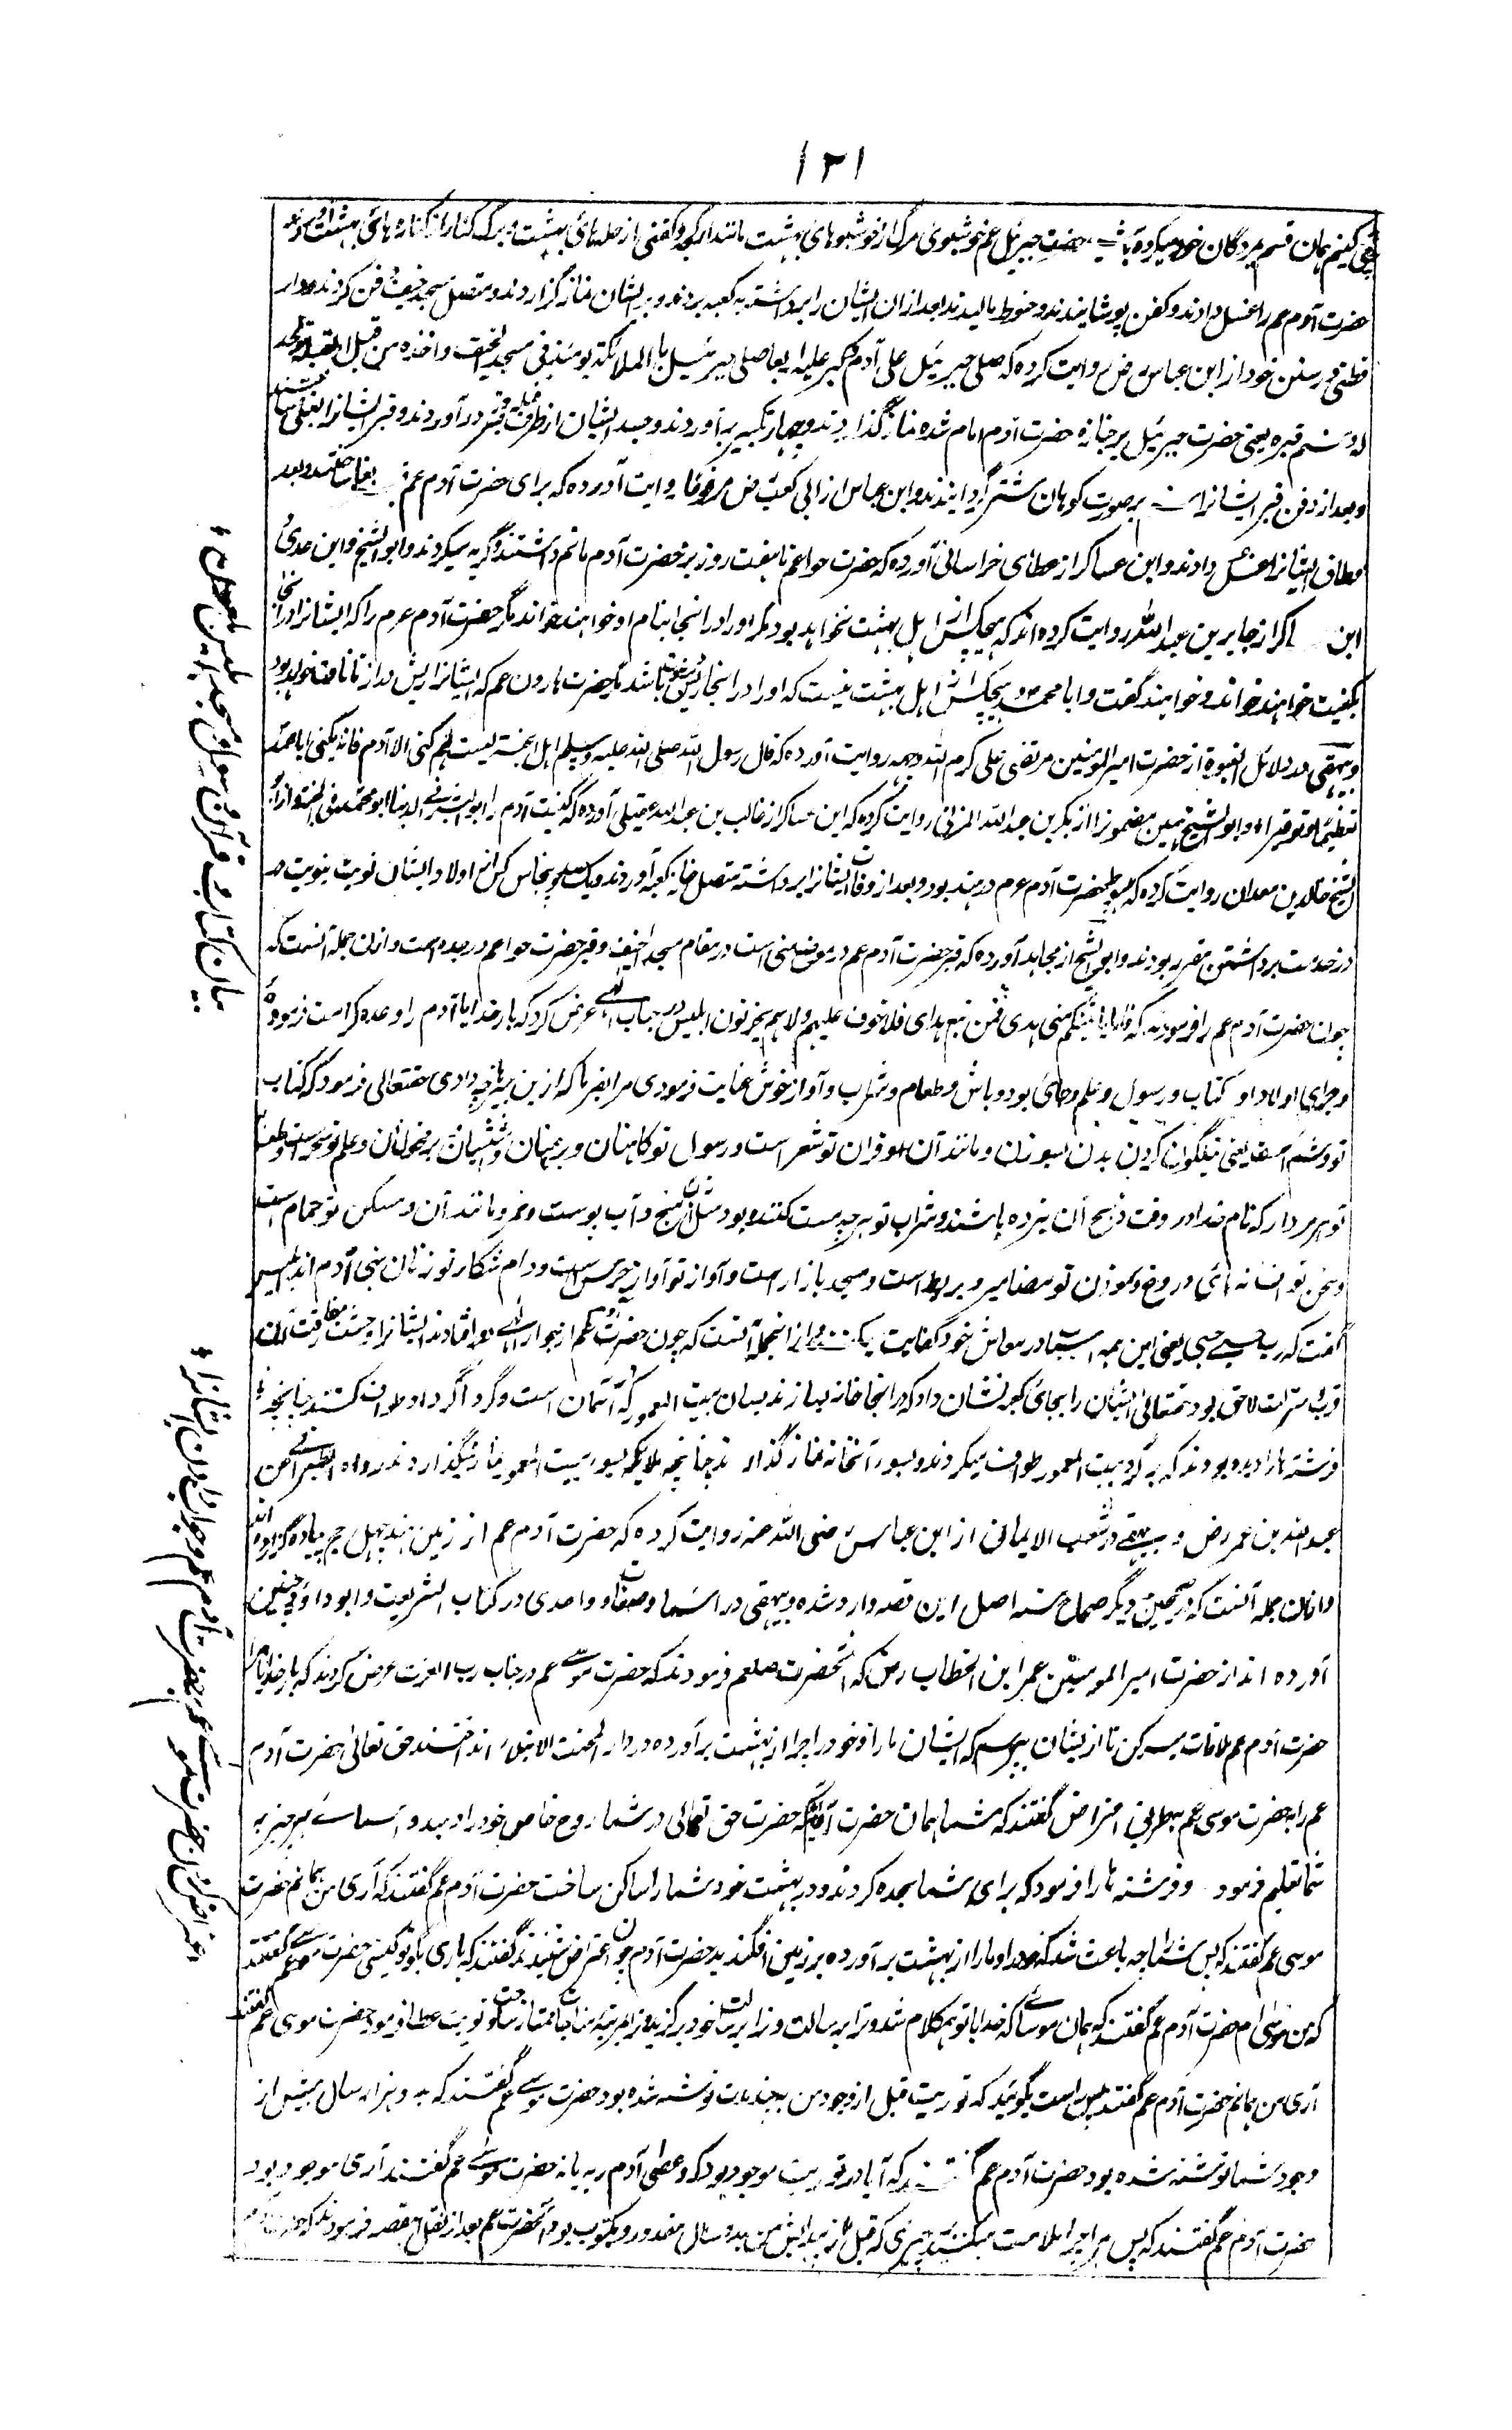 ۱۲۱
کنیم همان قسم بمردگان خود میکرده باشید حضرت جبرئیل عم خوشبوی مرگ از خوشبوهای بهشت مانند اگر و کفنی از حله های بهشت و برگ کنار از کناره های بهشت آورده
حضرت آدم عم را غسل دادند و کفن پوشانیدند و حنوط مالیدند بعد ازان ایشان را برداشته به کعبه بردند و بر ایشان نماز گزاردند و متصل مسجد خیف دفن کردند و دار
قطنی در سنن خود از ابن عباس رض روایت کرده که صلی جبرئیل علی آدم کبر علیه اربعا صلی جبرئیل بالملائکة یومئذ فی مسجد الخیف و اخذه من قبل القبلة و لحد
له و سنم قبره یعنی حضرت جبرئیل بر جنازه حضرت آدم امام شده نماز گذاردند و چهار تکبیر برآوردند و جسد ایشان از طرف قبله در قبر درآوردند و قبر ایشانرا بغلی ساختند
و بعد از دفن قبر ایشانرا بر صورت کوهان شتر گردانیدند و ابن عباس از ابی کعب رض مرفوعا روایت آورده که برای حضرت آدم عم بغلی ساختند و بعد
مطاق ایشانرا غسل دادند و ابن عساکر از عطای خراسانی آورده که حضرت حوا عم تا هفت روز بر حضرت آدم ماتم داشتند و گریه میکردند و ابو الشیخ و ابن عدی
ابن اکر از جابر بن عبد الله روایت کرده اند که هیچکس از اهل بهشت نخواهد بود مگر او را در انجا بنام او خواهند خواند مگر حضرت آدم عم را که ایشانرا در انجا
بکنیت خواهند خواند و خواهند گفت و ابا محمد و هیچکس از اهل بهشت نیست که او را در انجا ریش باشد مگر حضرت هارون عم که ایشانرا ریش دراز تا ناف خواهد بود
و بیهقی در دلائل النبوة از حضرت امیر المومنین مرتضی علی کرم الله وجهه روایت آورده که قال رسول الله صلی الله علیه وسلم اهل الجنة لیست لهم کنی الا آدم فانه یکنی ابا محمد
تعظیما و توقیرا و ابو الشیخ همین مضمونرا از بکر بن عبد الله المزنی روایت کرده که ابن عساکر از غالب بن عبد الله عقیلی آورده که کنیت آدم ابو البشر فی الدنیا ابو محمد فی الجنة و از ابو
الشیخ خالد بن معدان روایت کرده که هبوط حضرت آدم عم در هند بود و بعد از وفات ایشانرا برداشته متصل خانه کعبه آوردند و یک صد و پنجاه کس از اولاد ایشان نوبت بنوبت
در خدمت برداشتن مقرر بودند و ابو الشیخ از مجاهد آورده که قبر حضرت آدم عم در موضع منی است در مقام مسجد الخیف و قبر حضرت حوا عم در جده است و ازان جمله آنست که
چون حضرت آدم عم را فرمودند که فاما یاتینکم منی هدی فمن تبع هدای فلا خوف علیهم ولا هم یحزنون ابلیس در جناب الهی عرض کرد که بار خدایا آدم را وعده کرامت فرمودی
و برای اولاد او کتاب و رسول و علم و جای بود و باش و طعام و شراب و آواز خوش عنایت فرمودی مرا بفرما که ازین چیزها چه دادی حقتعالی فرمود که کتاب
تو وشم است یعنی نیلگون کردن بدن بسوزن و مانند آن و قران تو شعر است و رسول تو کاهنان و برهمنان و
تو هر مردار که نام خدا در وقت ذبح آن نبرده باشند و شراب تو هر چه مست کننده بود مثل بنج و آب پوست و خمر و مانند آن و مسکن تو حمام است
و سخن تو افسانه های دروغ و موذن تو مضامیر و بربط است و مسجد بازار است و آواز تو آواز جرس است و دام شکار تو زنان بنی آدم اند ابلیس
گفت که رب حسبی حسبی یعنی این همه اسباب در معاش خود کفایت میکند و از انجمله آنست که چون حضرت آدم عم از جوار الهی جدا افتادند ایشانرا وحشت مفارقت ازان
قرب منزلت لاحق بود حقتعالی ایشان را بجای کعبه نشان داد که در انجا خانه بسازند بسان بیت المعمور که در آسمان است و گرد اگرد او طواف کنند چنانچه
فرشته ها را دیده بودند که به گرد بیت المعمور طواف میکردند و بسوی آنخانه نماز گذارند چنانچه ملائکه بسوی بیت المعمور نماز میگذاردند رواه الطبرانی عن
عبد الله بن عمر رض و بیهقی در شعب الایمان از ابن عباس رضی الله عنه روایت کرده که حضرت آدم عم از زمین هند چهل حج پیاده گزارده اند
و ازان جمله آنست که در صحیحین و دیگر صحاح سته اصل این قصه وارد شده و بیهقی در اسما و صفات و واحدی در کتاب الشریعت و ابو داود چنین
آورده اند از حضرت امیر المومنین عمر ابن الخطاب رض که آنحضرت صلعم فرمودند که حضرت موسی عم در جناب رب العزت عرض کردند که بار خدایا مرا
حضرت آدم عم ملاقات میسر کن تا از ایشان بپرسم که ایشان مارا و خود را چرا از بهشت برآورده در دار المحنت الابتلاء انداختند حق تعالی حضرت آدم
عم را به حضرت موسی عم بطریق اعتراض گفتند که شما همان حضرت آدم اید که حضرت حق تعالی در شما روح خاص خود را دمید و اسماء هر چیز به
شما تعلیم فرمود و فرشته ها را فرمود که برای شما سجده کردند و در بهشت خود شما را ساکن ساخت حضرت آدم عم گفتند که آری من همانم حضرت
موسی عم گفتند که پس شما را چه باعث شد که خود را و مارا از بهشت برآورده بر زمین افگندید حضرت آدم چون اعتراض شنیدند گفتند که باری بگو تو کیستی حضرت موسی عم گفتند
که من موسی ام حضرت آدم عم گفتند که همان موسی که خدا با تو همکلام شد و ترا برسالت خود برگزید و ترا مرتبه مناجات ممتاز ساخت و توریت عطا فرمود حضرت موسی عم گفتند
آری من همانم حضرت آدم عم گفتند پس راست بگوئید که توریت قبل از وجود من به چند مدت نوشته شده بود حضرت موسی عم گفتند که بدو هزار سال پیش از
وجود شما نوشته شده بود حضرت آدم عم گفتند که آیا در توریت موجود بود که و عصی آدم ربه یا نه حضرت موسی عم گفتند آری موجود بود
حضرت آدم عم گفتند که پس مرا چرا ملامت میکنید بچیزی که قبل از پیدایش من بدو هزار سال مقدور و مکتوب بود آنحضرت عم بعد از نقل این قصه فرمودند که
بیان کتاب و قرآن و رسول و مسجد ابلیس لعین
عذر اعتراض حضرت موسی عم بحضرت آدم عم و جواب دادن ایشانرا